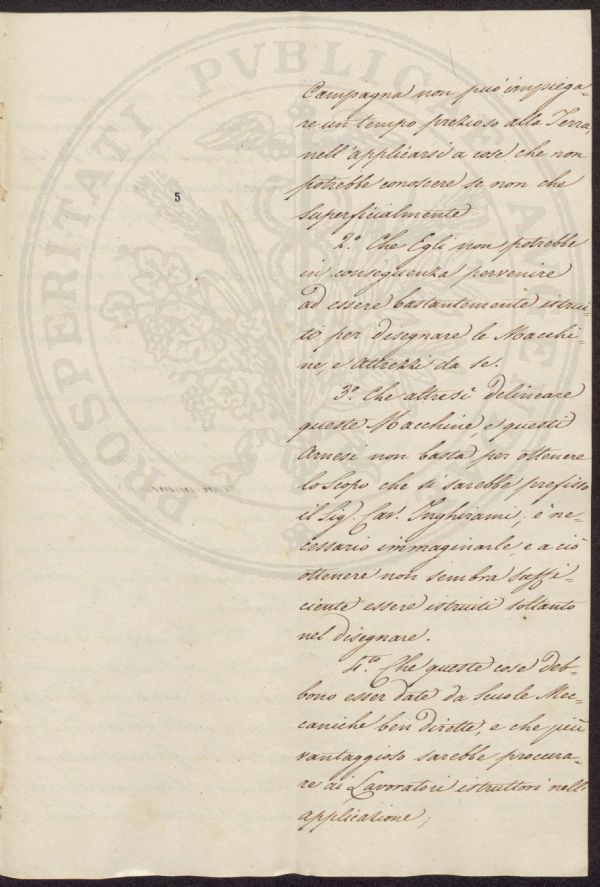 Campagna non può impiega-
re un tempo prezioso alla Terra,
nell'applicarsi a cose che non
potrebbe conoscere se non che
superficialmente
2.° Che Egli non potrebbe
in conseguenza pervenire
ad essere bastantemente istrui-
to per disegnare le Macchi-
ne, e Attrezzi da se.
3.° Che altresì delineare
queste Macchine, e questi
Arnesi non basta per ottenere
lo Scopo che si sarebbe prefisso
il Sig. Cav. Inghirami; è ne-
cessario immaginarle, e a ciò
ottenere non sembra suffi-
ciente essere istruiti soltanto
nel disegnare.
4.to Che queste cose deb-
bono esser date da Scuole Mec-
caniche ben dirette, e che più
vantaggioso sarebbe procura-
re ai Lavoratori istruttori nell'
applicazione;
5
PROSPERITATI PVBLICAE